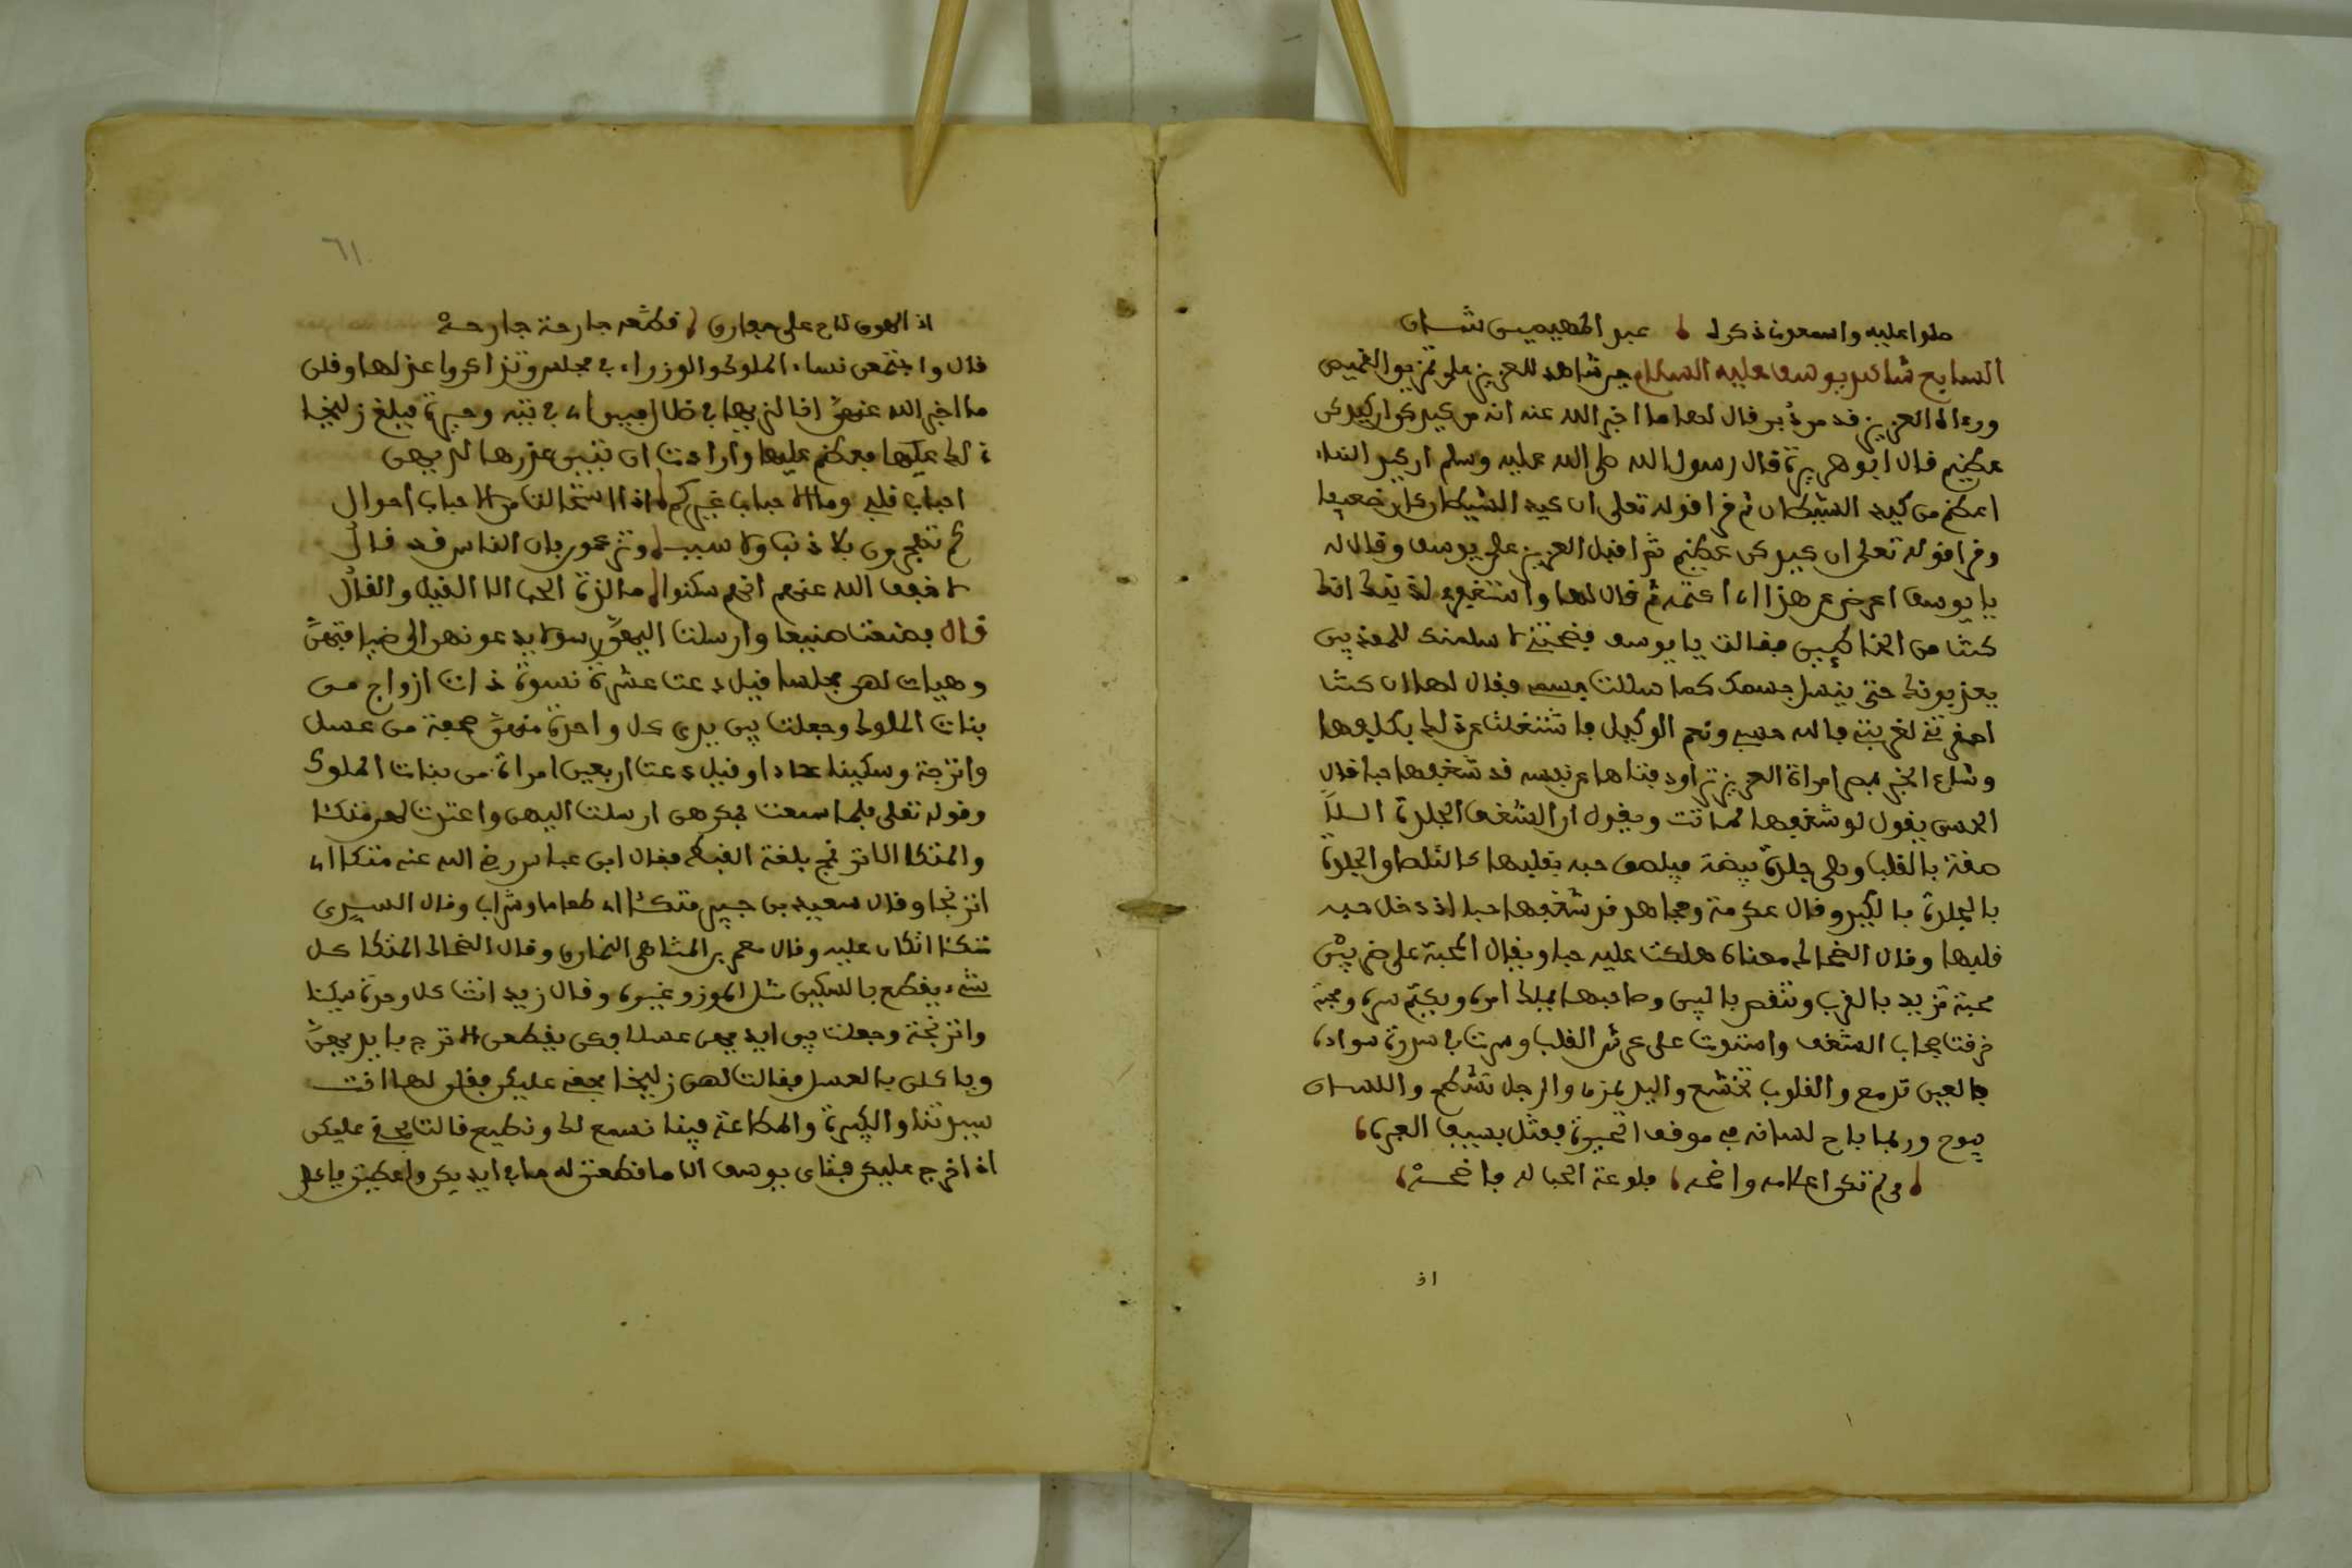 صلوا عليه واسمعون ذكرا عبد المهيمن
السابع يوسف عليه السلام للعزيز القميص
ورءاه العزيز قد من دبر قال لها ما اخبر الله عنه انه من كيدكن ان كيدكن
عظيم قال ابو هريرة قال رسول الله صلى الله عليه وسلم ان كيد النساء
اعظم من كيد الشيطان ثم قرا قوله تعلى ان كيد الشيطان كان ضعيفا
وقرا قوله تعلى ان كيدكن عظيم ثم اقبل العزيز على يوسف وقال له
يا يوسف اعرض عن هذا اي اكتمه ثم قال لها واستغفري لذنبك انك
كنت من الخاطئين فقالت يا يوسف فضحتني لاسلمنك للمعذبين
يعذبونك حتى ينسل جسمك كما سللت جسمي فقال لها ان كنت
فالله حسبي ونعم الوكيل
وشاع الخبر بمصر امراة العزيز تراود فتاها عن نفسه قد شغفها حبا قال
الحسن يقول لو شغفها لماتت ويقول ان الشغف الجلدة
بالقلب وهي جلدة بيضة فيلصق حبه بقلبها كالتصاق الجلدة
بالجلدة بالكبد وقال عكرمة ومجاهد قد شغفها حبا اذ دخل حبه
قلبها وقال الضحاك معناه هلكت عليه حبا ويقال المحبة على ضربين
محبة تزيد بالقرب وتنقص بالبين وصاحبها يملك امره ويكتم سره ومحبة
خرقت حجاب الشغف واستوت على عرش القلب وسرت في سره سواده
فالعين تدمع والقلوب تخشع واليد والرجل واللسان
يبوح وربما باح لسانه في موقف الحيرة
ولم تكن اعلامه واضحه فلوعة الحب له فاضحه
اذ
٦١
اذ الهوى على قطعه جارحة جارحه
قال واجتمعن نساء الملوك والوزراء في مجلس وتذاكروا عذلها وقلن
ما اخبر الله عنهن انا لنريها في ضلال مبين اي في تيه وحيرة فبلغ زليخا
ذلك عليها فعظم عليها وارادت ان تبين عذرها لديهن
احباب قلبي وما الاحباب غيركم اذا استحالت من الاحباب احوال
كم تهجرون بلا ذنب ولا سبب وتزعمون بان الناس قد قالوا
لا خفف الله عنهم انهم سكنوا ما لذة الحب الا القيل والقال
قال فصنعت صنيعا وارسلت اليهن رسولا يدعونهن الى ضيافتهن
وهيات لهن مجلسا قيل دعت عشرة نسوة ذات ازواج من
بنات الملوك وجعلت بين يدي كل واحدة منهن صحفة من عسل
واترجة وسكينا حادا وقيل دعت اربعين امراة من بنات الملوك
وقوله تعلى فلما سمعت بمكرهن ارسلت اليهن واعتدت لهن متكئا
والمتكا الاترنج بلغة القبط فقال ابن عباس رضي الله عنه متكا اي
اترنجا وقال سعيد بن جبير متكئا اي طعاما وشرابا وقال السدي
متكئا اتكان عليه وقال معمر بن المثنى هي النمارق وقال الضحاك المتكا كل
شيء يقطع بالسكين مثل الموز وغيره وقال زيد اتت كل وحدة سكينا
واترنجة وجعلت بين ايديهن عسلا وكن يقطعن الاترج بايديهن
وياكلن بالعسل فقالت لهن زليخا بحقي عليكن فقلن لها انت
سيدتنا والكبيرة والمطاعة فينا نسمع لك ونطيع قالت بحقي عليكن
اذا خرج عليكن فتاي يوسف الا ما قطعتن له مما في ايديكن واعطيتن